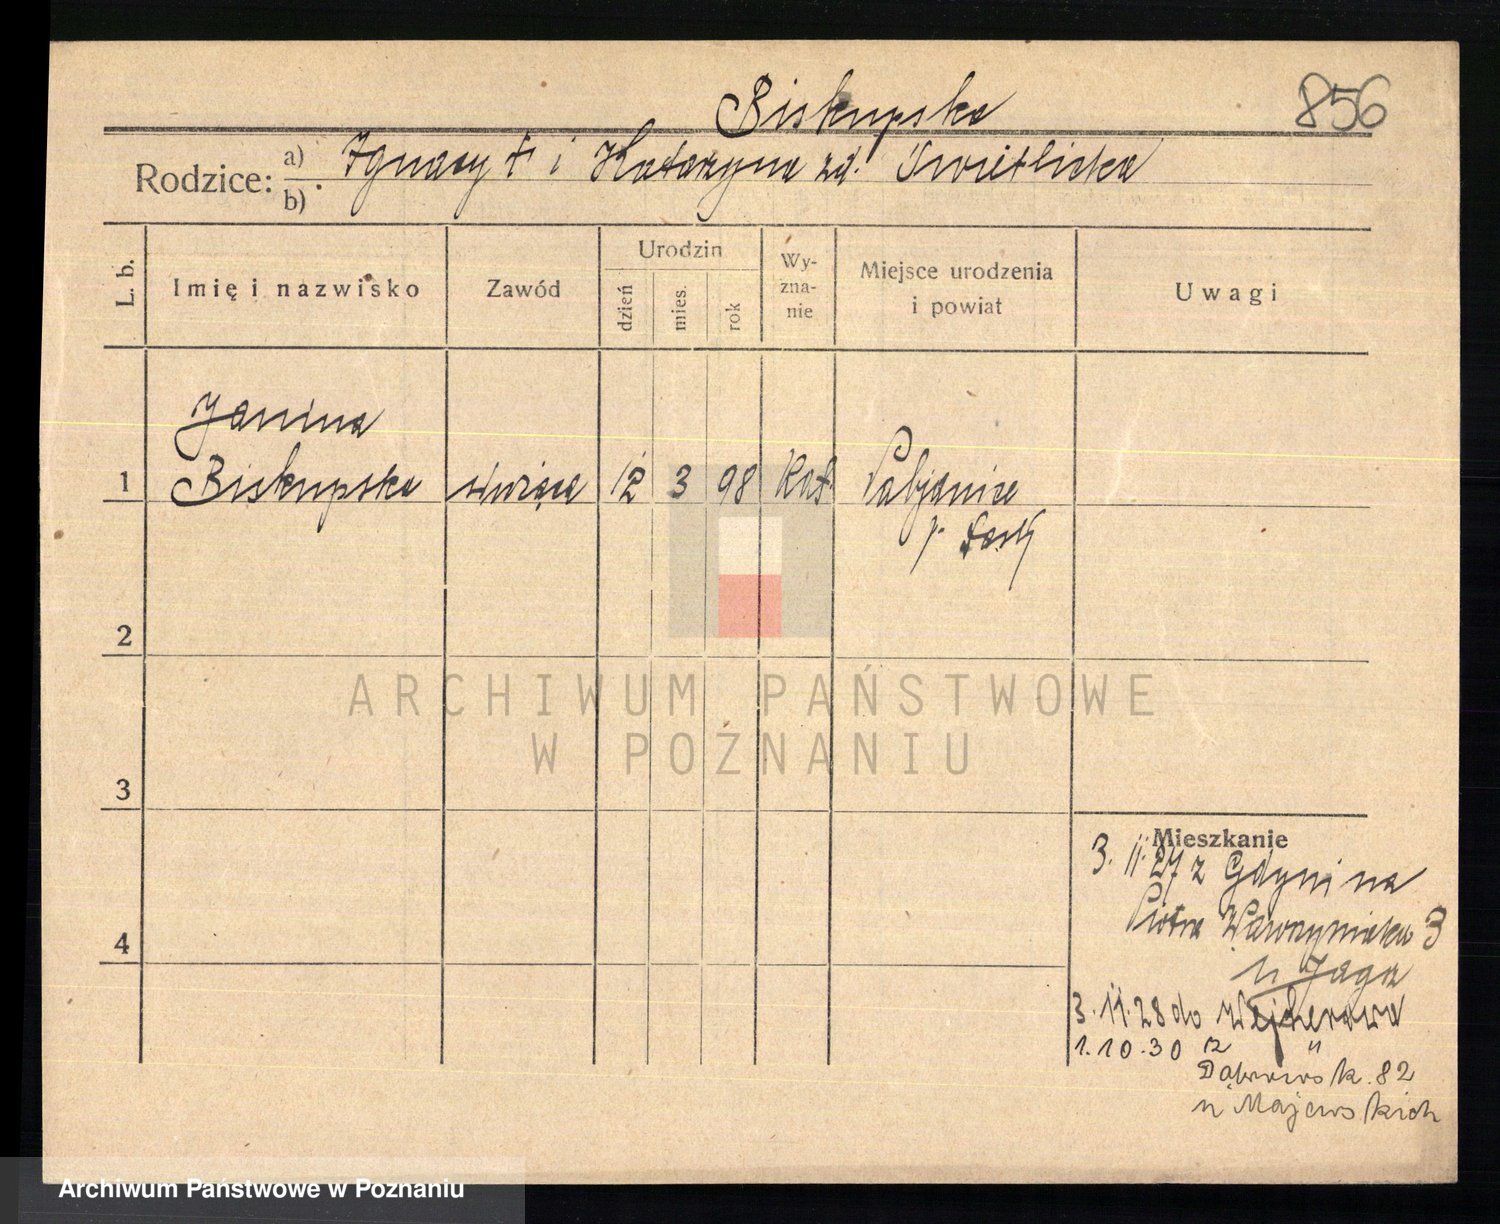 Biskupska
856
Rodzice: a) Ignacy † i Katarzyna zd. Świetlicka
b)
L. b.
Imię i nazwisko
Zawód
Urodzin
dzień
mies.
rok
Wy-
zna-
nie
Miejsce urodzenia
i powiat
Uwagi
Janina
1 Biskupska służąca 12 3 98 Kat. Pabjanice
p. Łask
2
3
4
ARCHIWUM PAŃSTWOWE
W POZNANIU
Mieszkanie
3. 11. 27 z Gdyni na
Piotra Wawrzyniaka 3
u Jaga
3. 11. 28 do Wejherowa
1. 10. 30 z "
Dąbrowsk. 82
u Majewskich
Archiwum Państwowe w Poznaniu